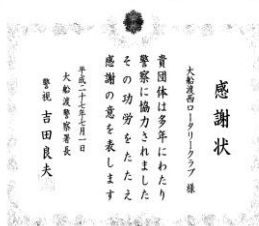 感謝状
大船渡西ロータリークラブ 様
貴団体は多年にわたり
警察に協力されました
その功労をたたえ
感謝の意を表します
平成二十七年七月一日
大船渡警察署長
警視 吉田良夫